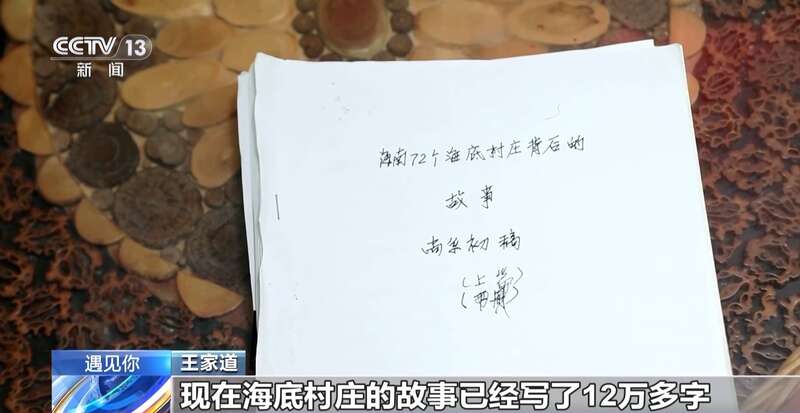 CCTV 13
新闻
海南72个海底村庄背后的
故事
初稿
遇见你
王家道
现在海底村庄的故事已经写了12万多字